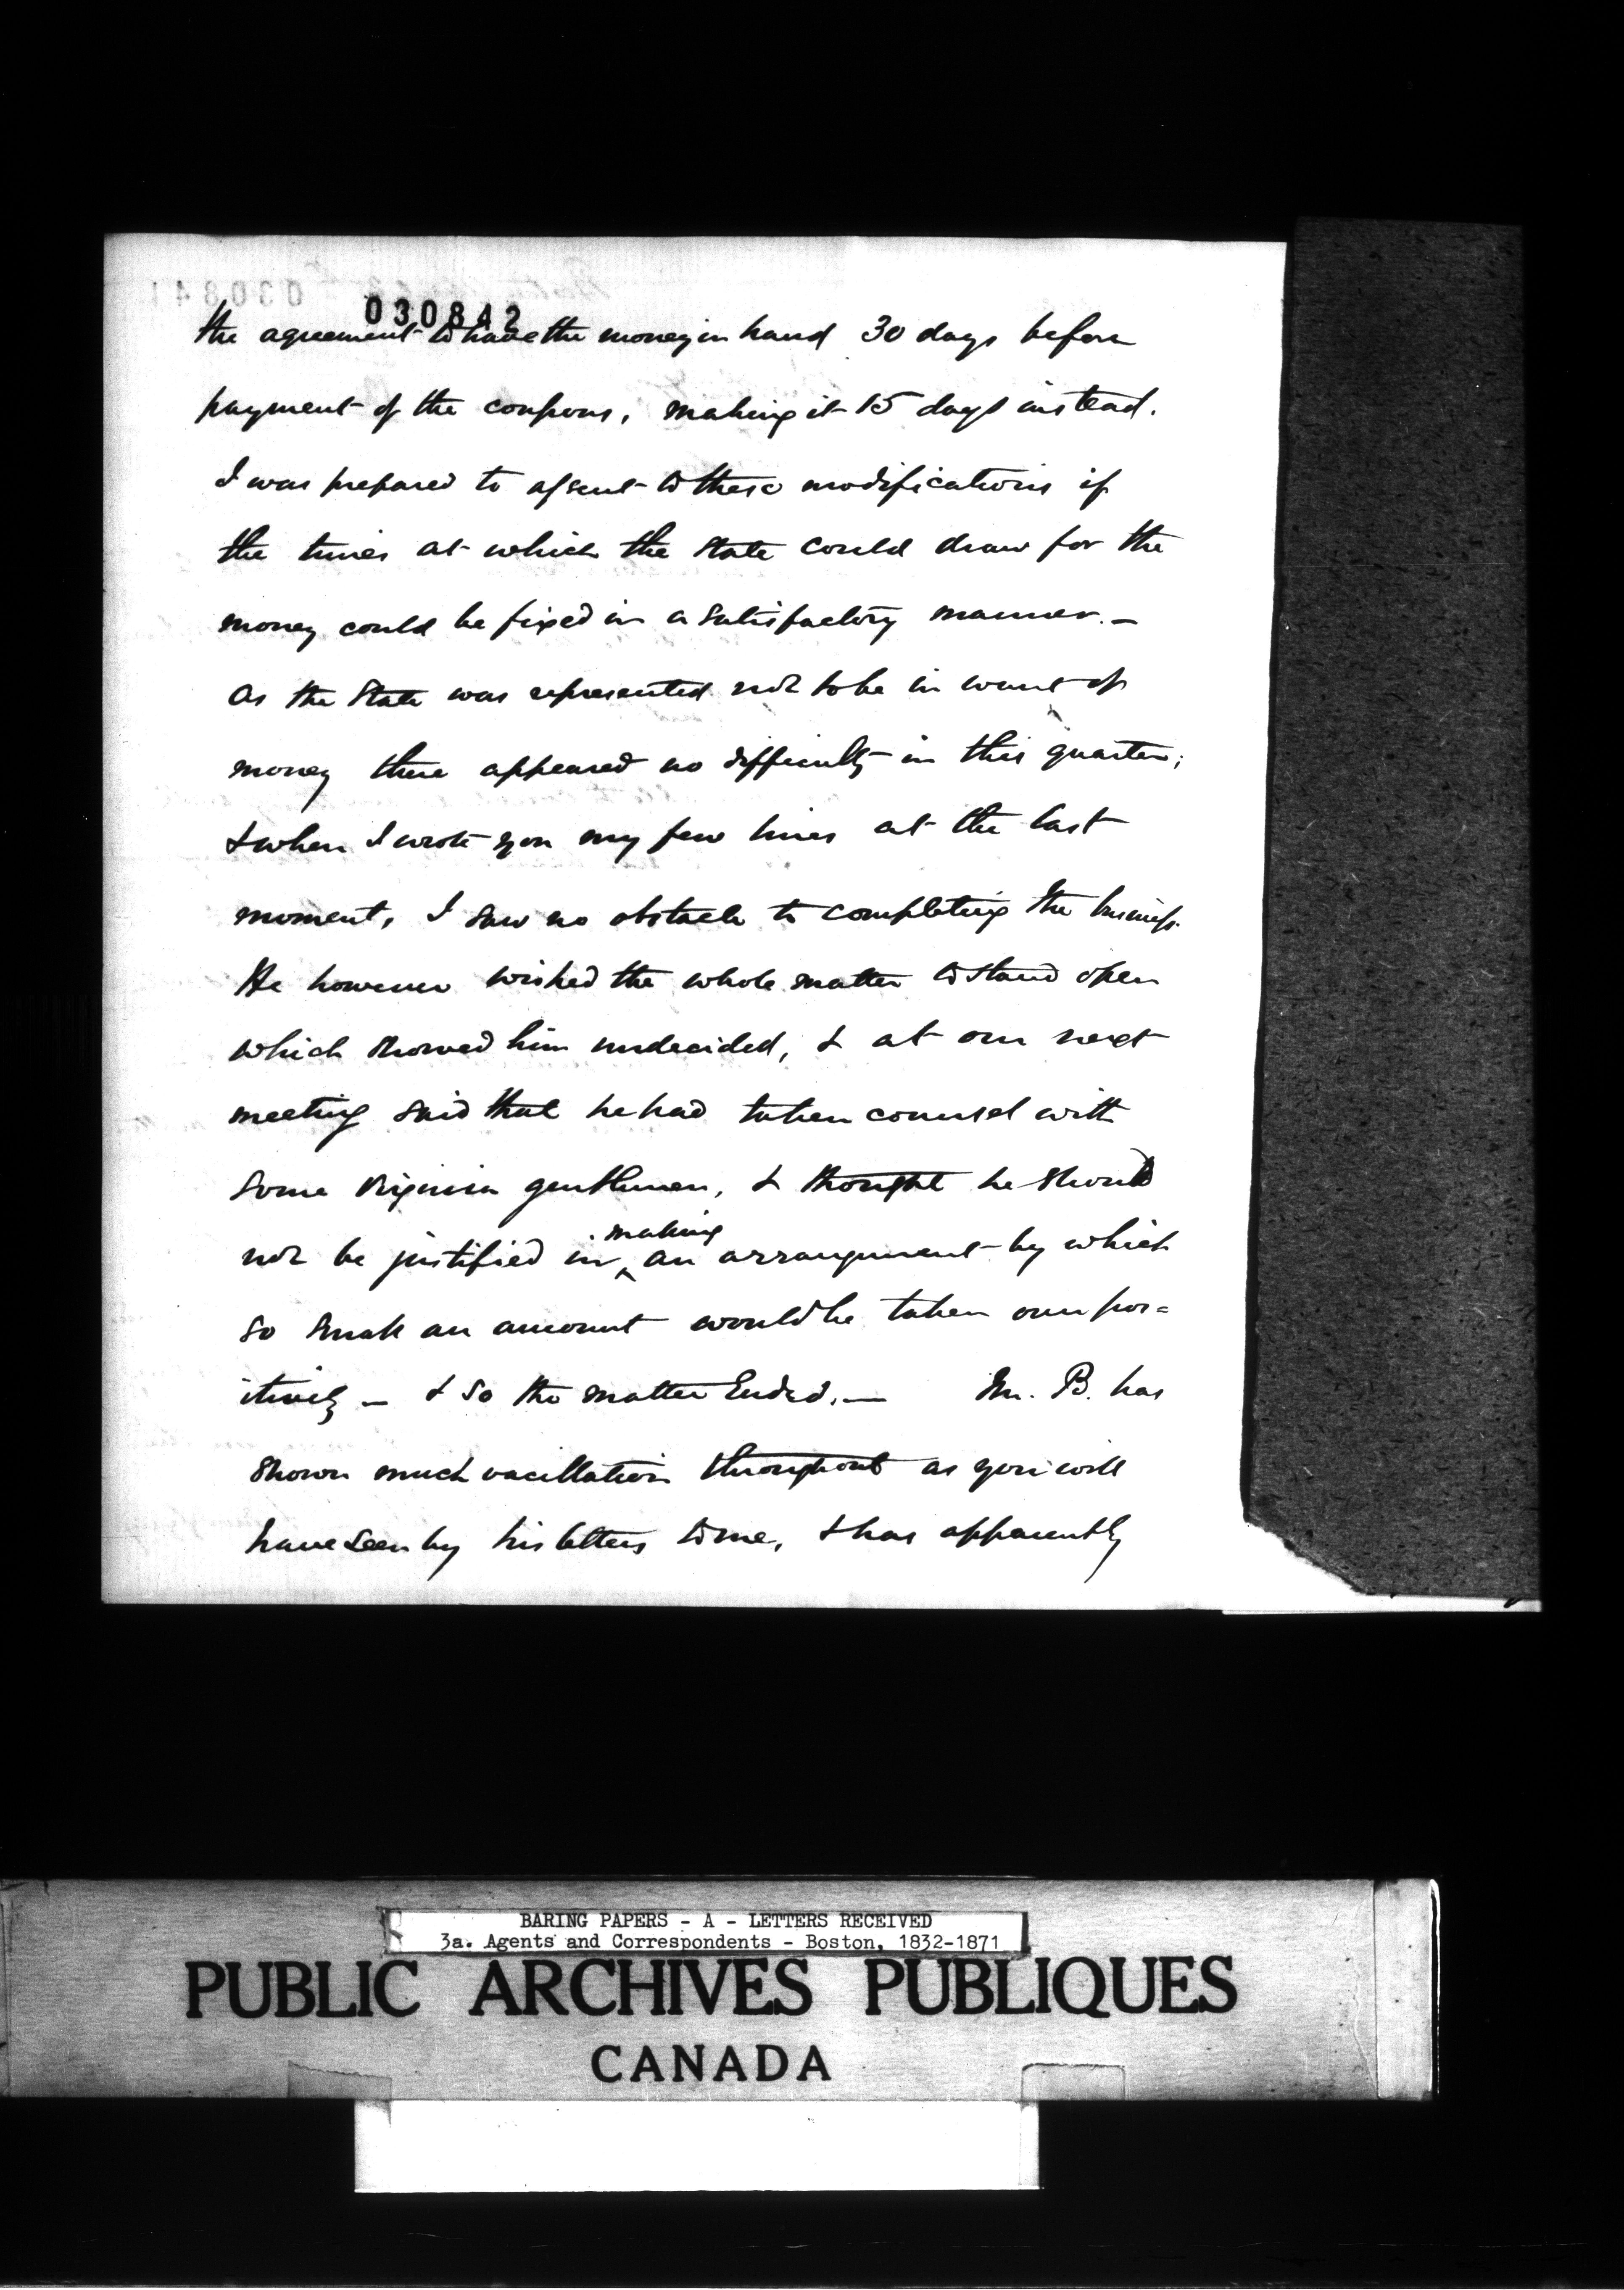 030842
the agreement to have the money in hand 30 days before
payment of the coupons, making it 15 days instead.
I was prepared to assent to these modifications if
the times at which the State could draw for the
money could be fixed in a satisfactory manner. —
As the State was represented not to be in want of
money there appeared no difficulty in this quarter;
& when I wrote you my few lines at the last
moment, I saw no obstacle to completing the business.
He however wished the whole matter to stand open
which showed him undecided, & at our next
meeting said that he had taken counsel with
some Virginia gentlemen, & thought he should
not be justified in making an arrangement by which
so small an amount would be taken pos=
itively — & so the matter Ended. — Mr. B. has
shown much vacillation throughout as you will
have seen by his letters to me, & has apparently
BARING PAPERS - A - LETTERS RECEIVED
3a. Agents and Correspondents - Boston, 1832-1871
PUBLIC ARCHIVES PUBLIQUES
CANADA